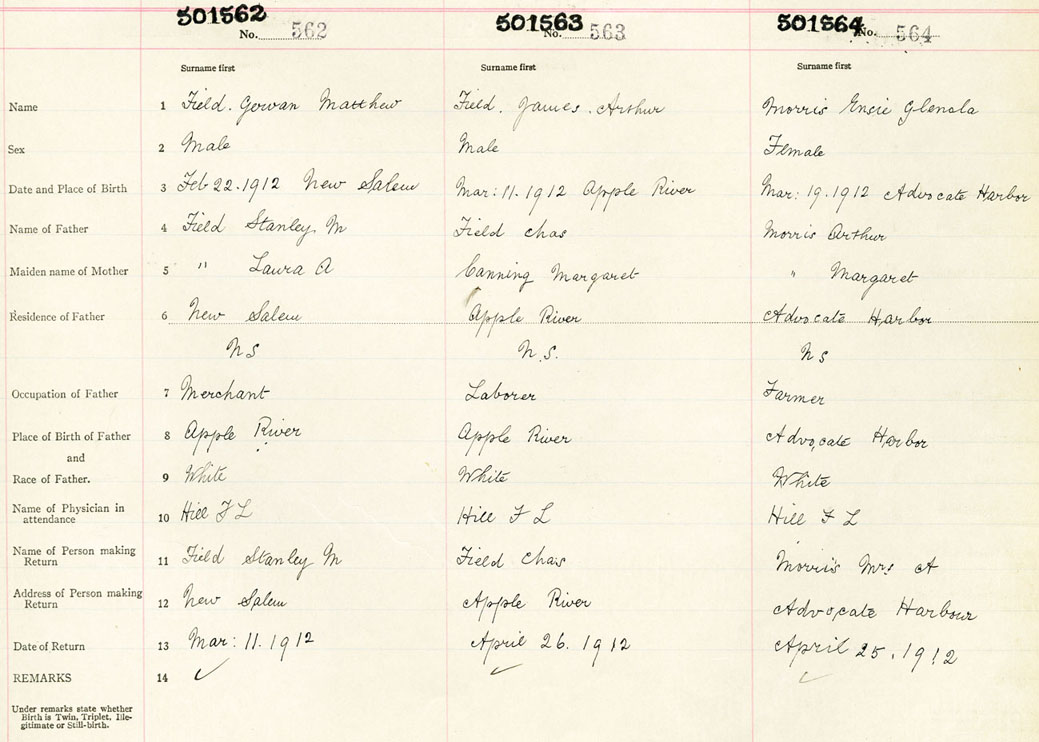 501562 501563 501564
No. 562 No. 563 No. 564
Surname first Surname first Surname first
Name 1 Field. Gowan Matthew Field. James. Arthur Morris Ensie Glenola
Sex 2 Male Male Female
Date and Place of Birth 3 Feb 22.1912 New Salem Mar: 11. 1912 Apple River Mar: 19. 1912 Advocate Harbor
Name of Father 4 Field Stanley M Field Chas Morris Arthur
Maiden name of Mother 5 " Laura A Canning Margaret " Margaret
Residence of Father 6 New Salem Apple River Advocate Harbor
N S N.S. N S
Occupation of Father 7 Merchant Laborer Farmer
Place of Birth of Father 8 Apple River Apple River Advocate Harbor
and
Race of Father. 9 White White White
Name of Physician in
attendance 10 Hill F L Hill F L Hill F L
Name of Person making
Return 11 Field Stanley M Field Chas Morris Mrs A
Address of Person making
Return 12 New Salem Apple River Advocate Harbour
Date of Return 13 Mar: 11. 1912 April 26. 1912 April 25. 1912
REMARKS 14 ✓ ✓ ✓
Under remarks state whether
Birth is Twin, Triplet, Ille-
gitimate or Still-birth.